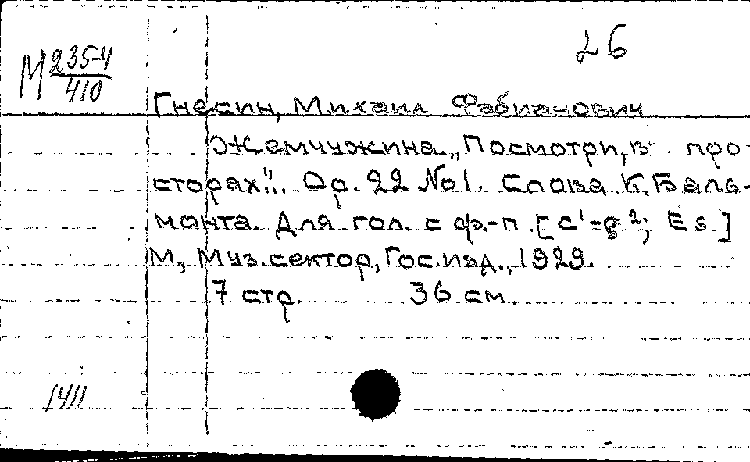 26
М 235-4
410
Гнесин, Михаил Фабианович
Жемчужина. „Посмотри, в про-
сторах“.. Ор. 22 No1. Слова К. Баль-
монта. Для гол. с ф.-п. [c¹-g²; Es.]
М., Муз. сектор, Гос. изд., 1929.
7 стр. 36 см.
1411